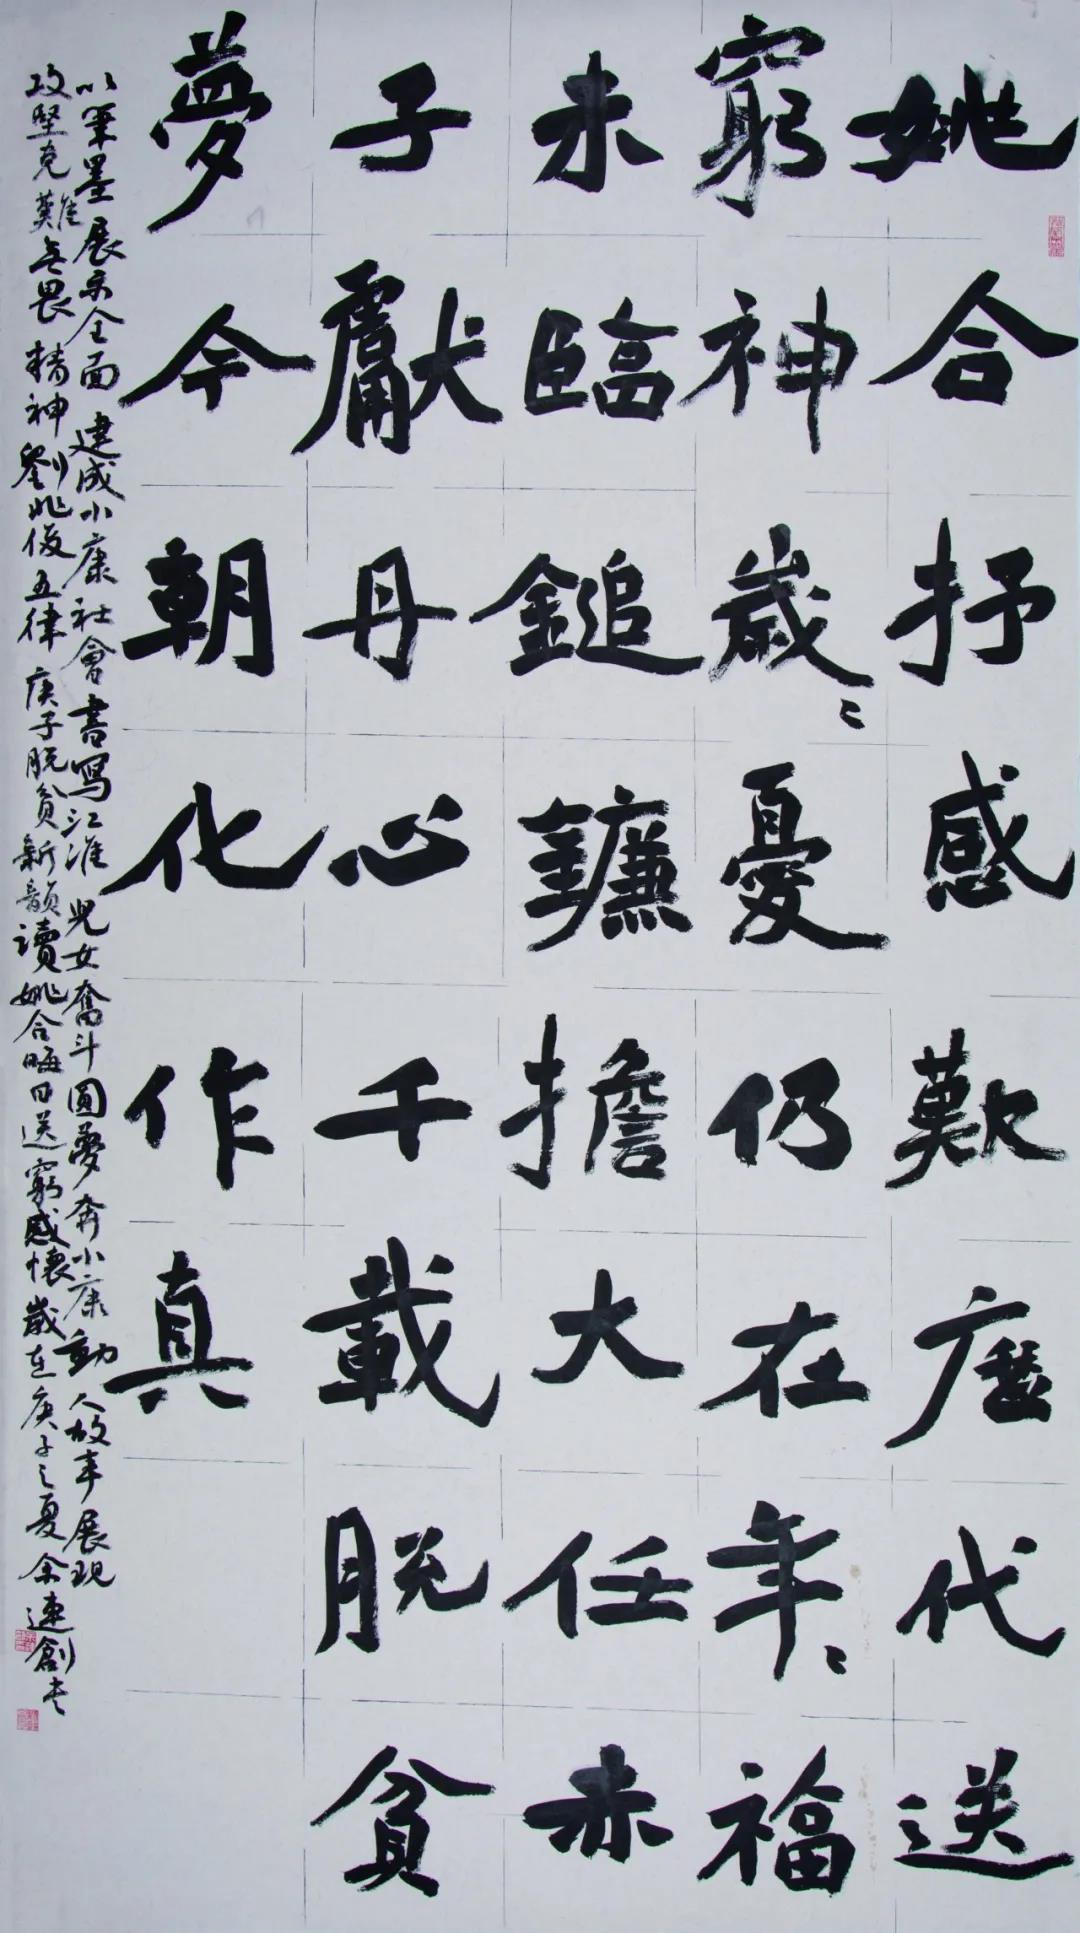 姚合抒感歎歷代送
窮神歲〻憂仍在年〻福
未臨鎚鐮擔大任赤
子獻丹心千載脫貧
夢今朝化作真
以筆墨展示全面建成小康社會書寫江淮兒女奮斗圓夢奔小康動人故事展現
攻堅克難無畏精神劉兆俊五律庚子脫貧新韻讀姚合晦日送窮感懷歲在庚子之夏余連創書